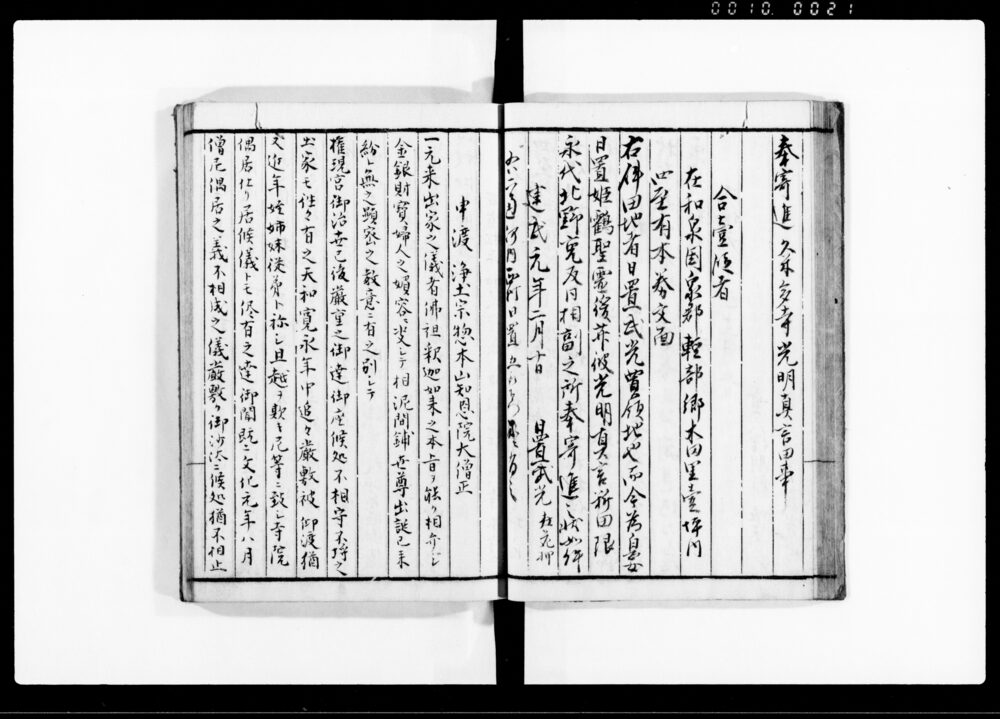 0010 0021
奉寄進 久米多寺光明真言田事
合壹段者
在和泉国泉郡軽部郷木田里壹坪内
四至有本券文面
右件田地者日置武光買領地也而今為自妻
日置姫鶴聖霊後并彼光明真言新田限
永代北野宛反本相副之所奉寄進之状如件
建武元年二月十日 日置武光 在花押
日置
申渡 浄土宗惣本山知恩院大僧正
一元来出家之儀者佛祖釈迦如来之本旨ヲ能ク相弁シ
金銀財寳婦人之媚容ニ泥シテ相泥間鋪世尊出誕已来
紛レ無之顕密之教意ニ有之別シテ
権現宮御治世已後厳重之御達御座候処不相守不埒之
出家モ往々有之天和寛永年中追々厳敷被 御渡猶
又近年姪姉妹従弟ト称シ旦越ヲ欺キ尼等ニ致シ寺院
偶居仕リ居候儀トモ侭有之達御聞既ニ文化元年八月
僧尼偶居之義不相成之儀厳敷ク御沙汰ニ候処猶不相止